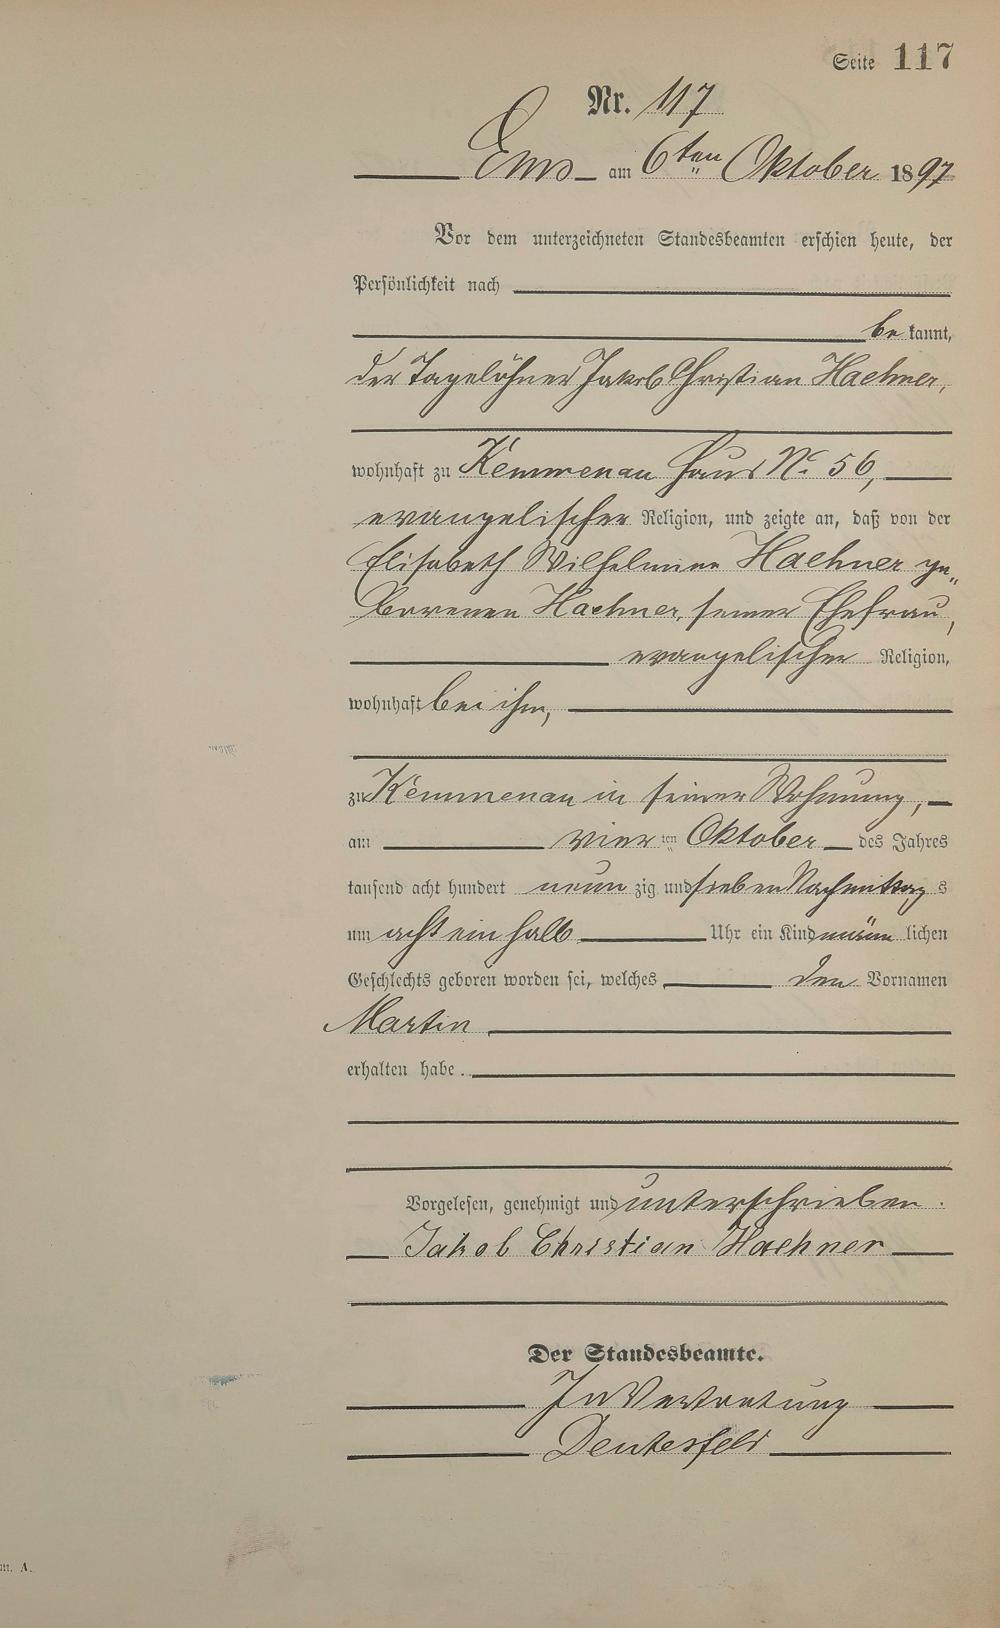 Seite 117
Nr. 117
Ems am 6ten Oktober 1897
Vor dem unterzeichneten Standesbeamten erschien heute, der
Persönlichkeit nach
be kannt,
der Tagelöhner Jakob Christian Haehner,
wohnhaft zu Kemmenau Haus No 56,
evangelischer Religion, und zeigte an, daß von der
Elisabeth Wilhelmine Haehner ge„
borenen Haehner, seiner Ehefrau,
evangelischer Religion,
wohnhaft bei ihm,
zu Kemmenau in seiner Wohnung,
am vier ten Oktober des Jahres
tausend acht hundert neun zig und sieben Nachmittag s
um acht ein halb Uhr ein Kind männ lichen
Geschlechts geboren worden sei, welches den Vornamen
Martin
erhalten habe.
Vorgelesen, genehmigt und unterschrieben.
Jakob Christian Haehner
Der Standesbeamte.
In Vertretung
m. A.